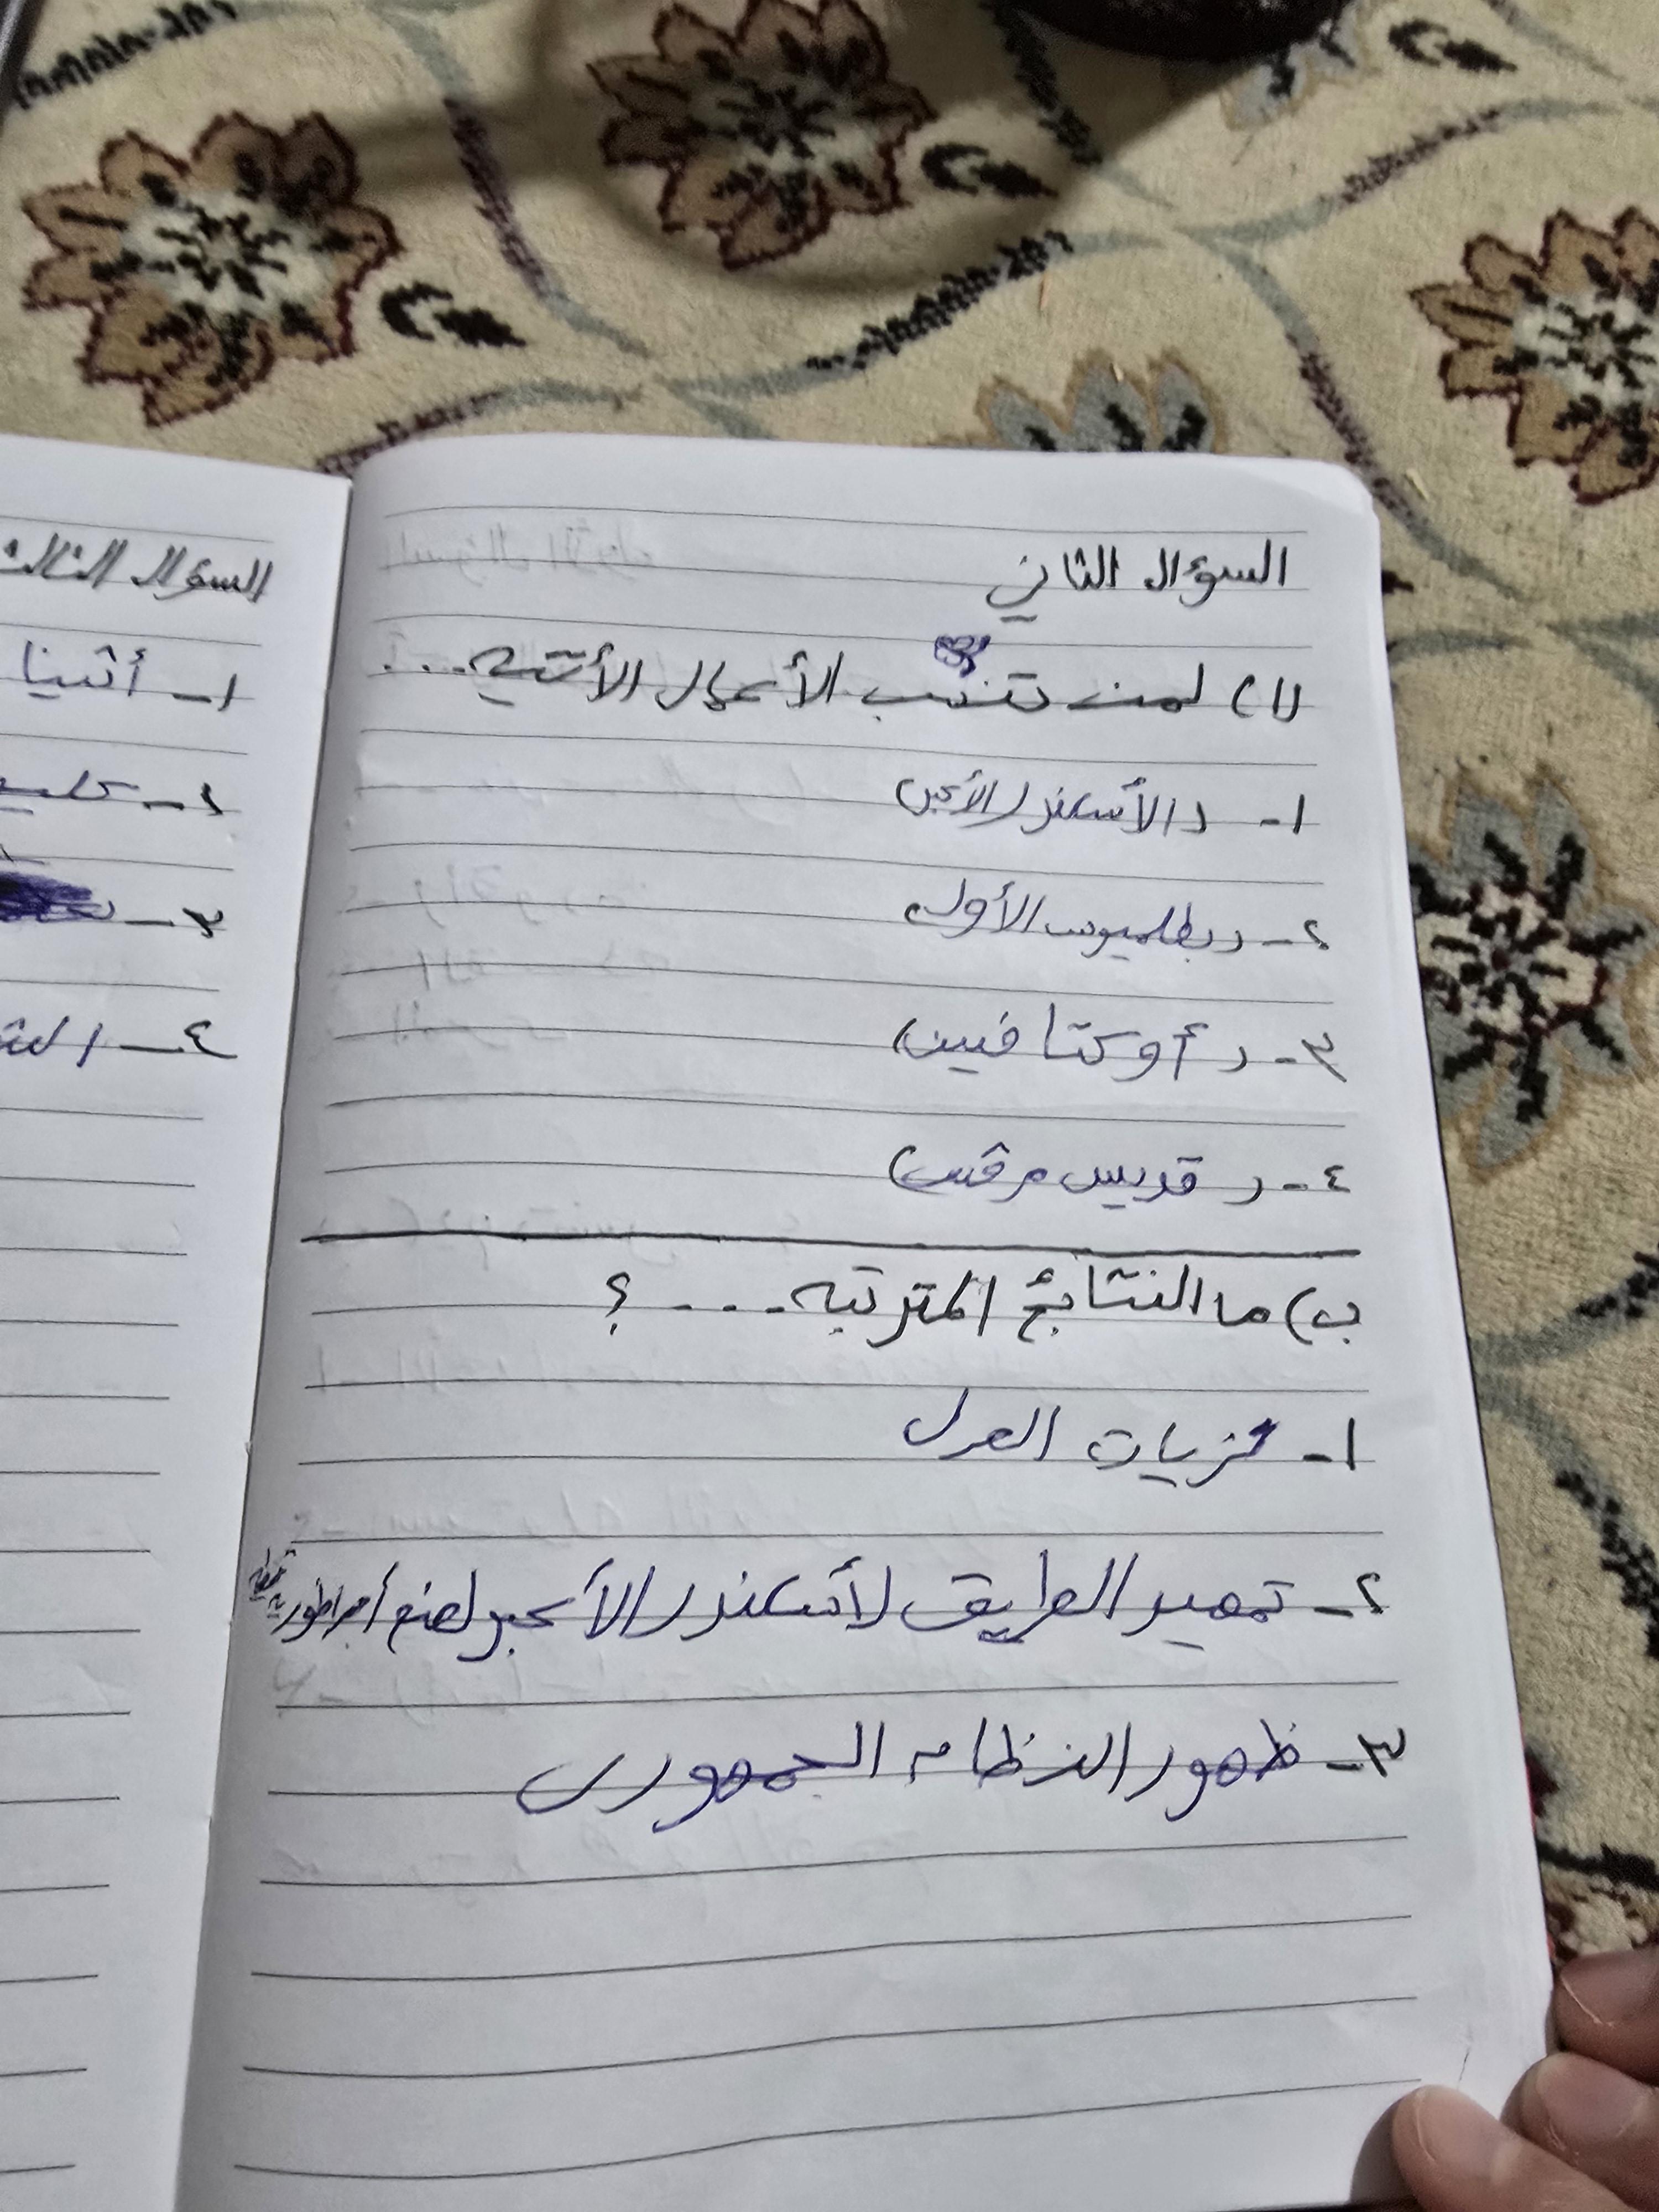 السؤال الثاني
(١) لمن تنسب الأعمال الأتتيه....
١- (الأسكندر الأكبر)
٢- (بطلميوس الأول
٣- (أوكتافيين)
٤- (قديس مرقس)
ب) ما النتائج المترتبه.... ؟
١- العدل
٢- تمهيد الطريق لأسكندر الأكبر لصنع أمبراطوريه
٣- ظهور النظام الجمهوري
السؤال الثالث
١- أثينا
٢-
٣-
٤-